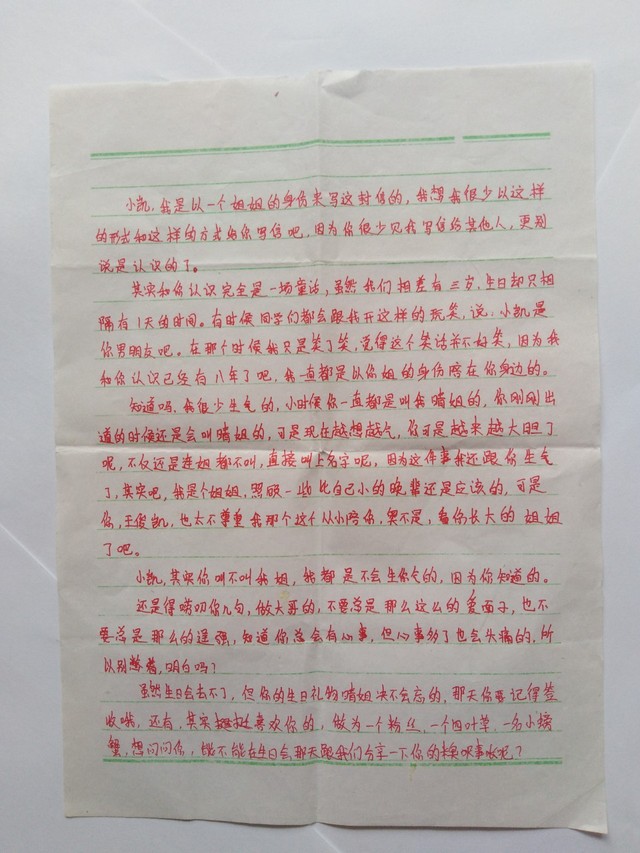 小凯，我是以一个姐姐的身份来写这封信的，我想我很少以这样
的形式和这样的方式给你写信吧，因为你很少见我写信给其他人，更别
说是认识的了。
其实和你认识完全是一场童话，虽然我们相差有三岁，生日却只相
隔有1天的时间。有时候同学们都会跟我开这样的玩笑，说：小凯是
你男朋友吧。在那个时候我只是笑了笑，觉得这个笑话并不好笑，因为我
和你认识已经有八年了吧，我一直都是以你姐的身份陪在你身边的。
知道吗，我很少生气的，小时候你一直都是叫我晴姐的，你刚刚出
道的时候还是会叫晴姐的，可是现在越想越气，你可是越来越大胆了
呢，不仅还是连姐都不叫，直接叫上名字呢，因为这件事我还跟你生气
了，其实吧，我是个姐姐，照顾一些比自己小的晚辈还是应该的，可是
你，王俊凯，也太不尊重我那个这个从小陪你，哭不是，看你长大的姐姐
了吧。
小凯，其实你叫不叫我姐，我都是不会生你气的，因为你知道的。
还是得唠叨你几句，做大哥的，不要总是那么这么的爱面子，也不
要总是那么的逞强，知道你总会有心事，但心事多了也会头痛的，所
以别憋着，明白吗？
虽然生日会去不了，但你的生日礼物晴姐决不会忘的，那天你要记得签
收哦，还有，其实挺喜欢你的，做为一个粉丝，一个四叶草，一名小螃
蟹，想问问你，能不能在生日会那天跟我们分享一下你的糗事呢？